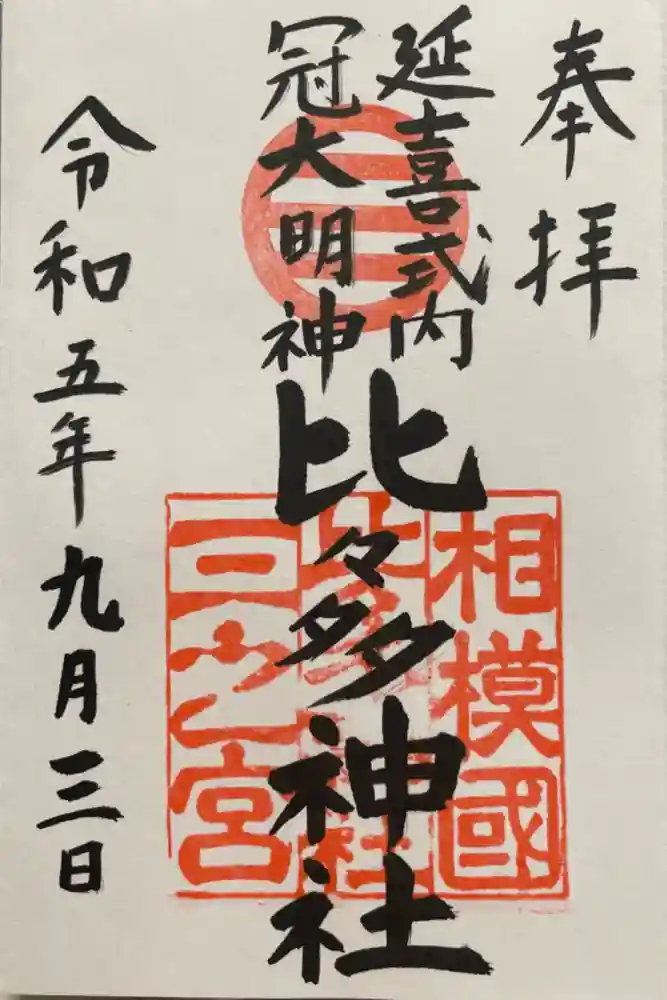 奉拝
延喜式内
冠大明神
比々多神社
相模國
三之宮
令和五年九月三日